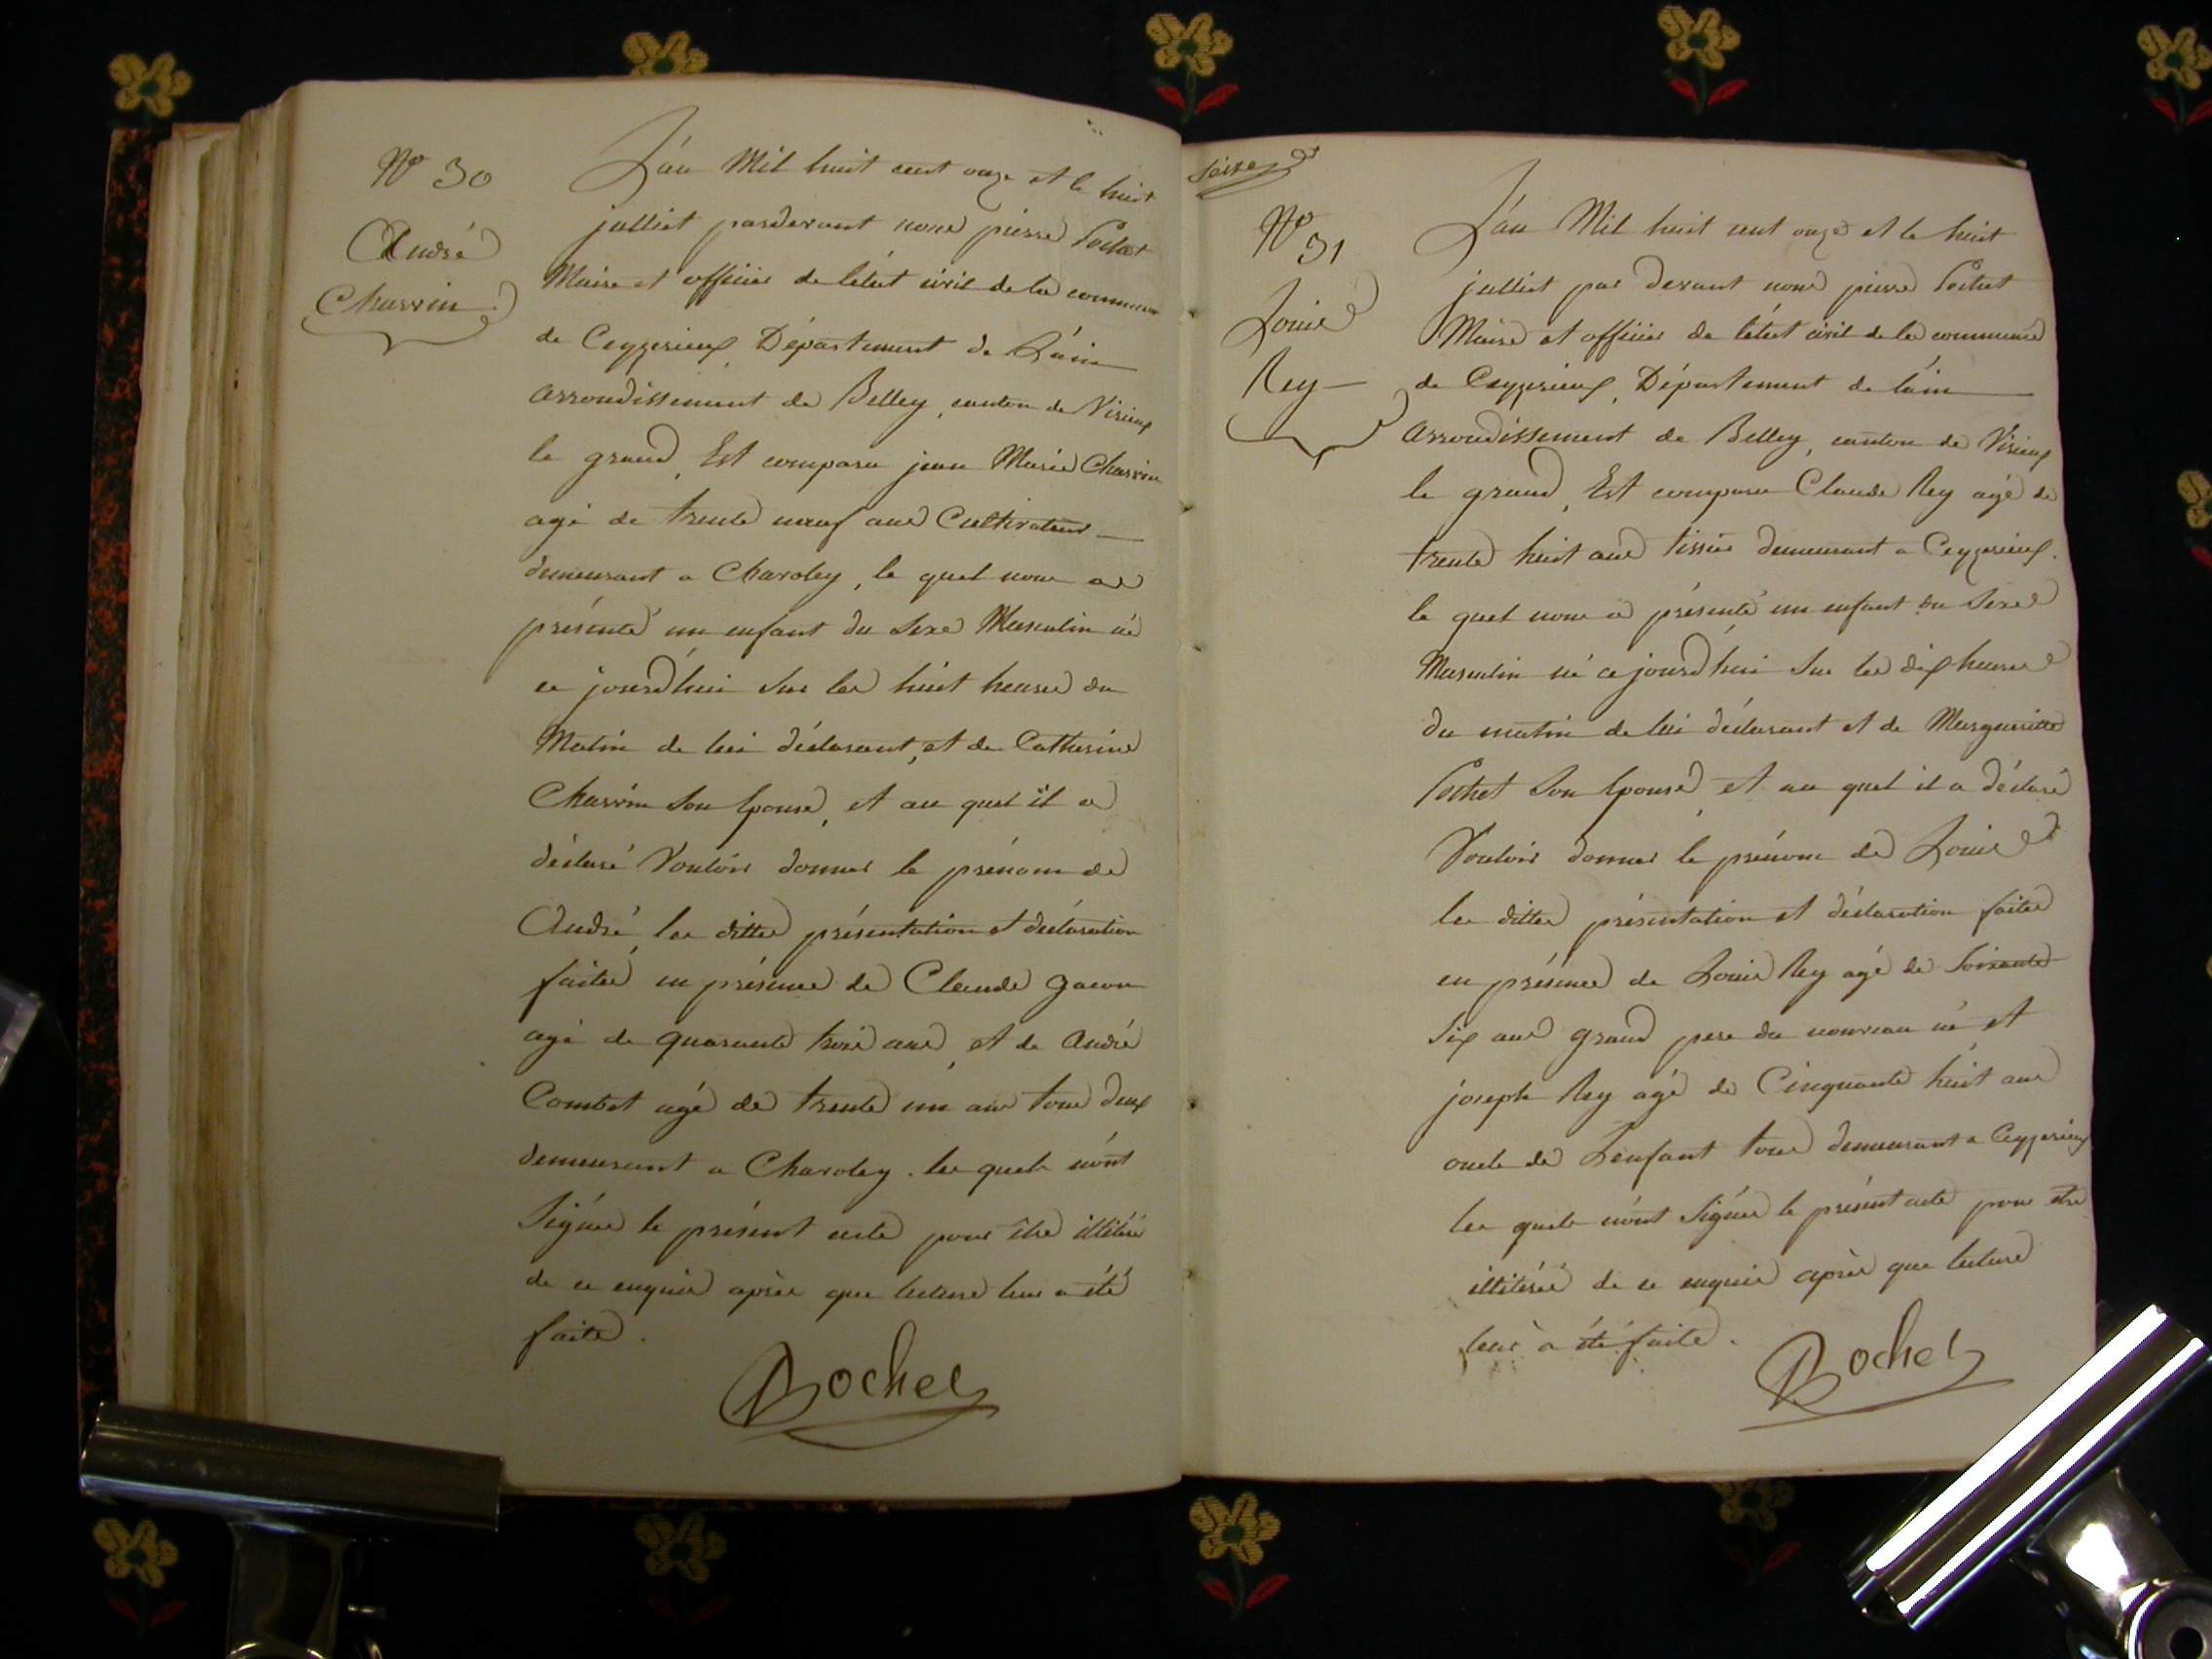 Nº 30
André
Charvin
L'an Mil huit cent onze et le huit
julliet pardevant nous pierre Pochet
Maire et officier de l'état civil de la commune
de Ceyzerieux, Département de L'ain
arrondissement de Belley, canton de Virieux
le grand, Est comparu jean Marie Charvin
agé de trente neuf ans Cultivateur
demeurant a Charoley, le quel nous a
présenté un enfant du sexe Masculin né
ce jourd'hui sur les huit heures du
Matin de lui déclarant, et de Catherine
Charvin son Epouse, et au quel il a
déclaré Vouloir donner le prénom de
André, les dittes présentation et déclaration
faites en présence de Claude gacon
agé de quarante trois ans, et de André
Combet agé de trente un ans tous deux
demeurant a Charoley. les quels n'ont
Signés le présent acte pour être illitérés
de ce enquis après que lecture leur a été
faite.
Pochet
Nº 31
Louis
Rey
L'an Mil huit cent onze et le huit
julliet par devant nous pierre Pochet
Maire et officier de l'état civil de la commune
de Ceyzerieux, Département de l'ain
arrondissement de Belley, canton de Virieux
le grand, Est comparu Claude Rey agé de
trente huit ans tissier demeurant a Ceyzerieux.
le quel nous a présenté un enfant du Sexe
Masculin né ce jourd'hui Sur les dix heures
du matin de lui déclarant et de Margueritte
Pochet Son Epouse, et au quel il a déclaré
Vouloir donner le prénom de Louis
les dittes présentation et déclaration faites
en présence de Louis Rey agé de Soixante
Six ans grand pere du nouveau né et
joseph Rey agé de Cinquante huit ans
oncle de L'enfant tous demeurant a Ceyzerieux
les quels n'ont Signés le présent acte pour être
illitérés de ce enquis après que lecture
leur à été faite.
Pochet